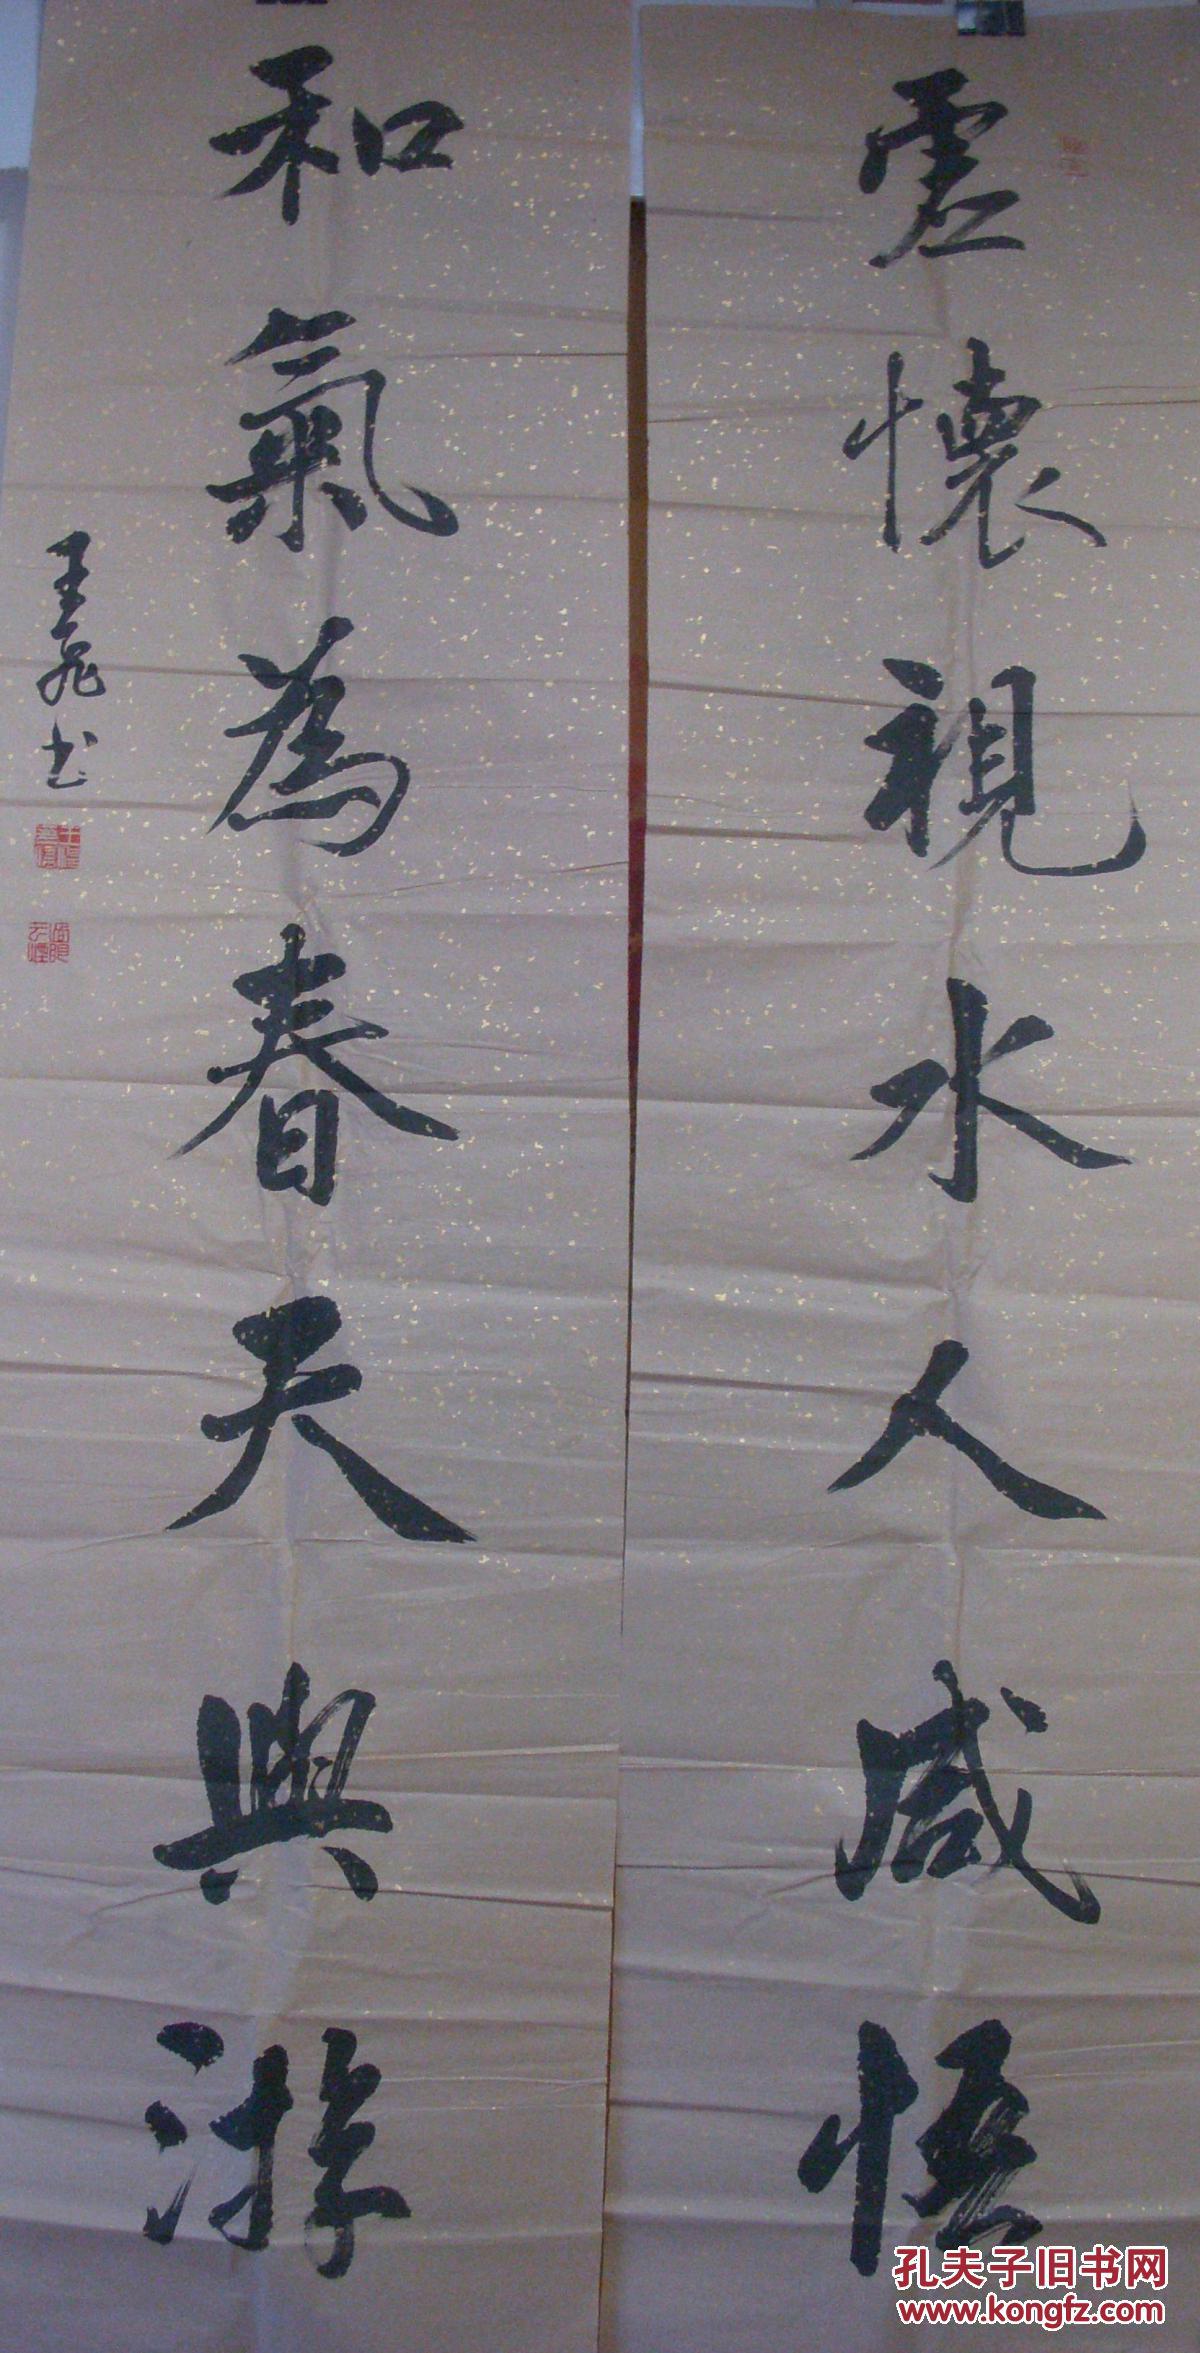 虚懷視水人咸悟
和氣為春天與游
孔夫子旧书网
www.kongfz.com